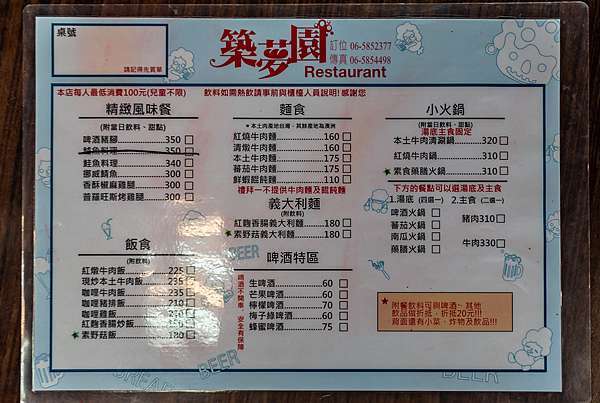 桌號
請記得先買單
築夢園
Restaurant
訂位 06-5852377
傳真 06-5854498
本店每人最低消費100元(兒童不限)
飲料如需熱飲請事前與櫃檯人員說明!感謝您
精緻風味餐
(附當日飲料、甜點)
啤酒豬腳 350
鱈魚料理 350
鮭魚料理 340
挪威鯖魚 300
香酥椒麻雞腿 300
普羅旺斯烤雞腿 300
飯食
(附飲料)
紅燉牛肉飯 225
現炒本土牛肉飯 235
咖哩牛肉飯 235
咖哩豬排飯 210
咖哩雞飯
紅麴香腸炒飯
★素野菇飯 180
麵食
＊本土肉產地台灣、其餘產地為澳洲
紅燒牛肉麵 160
清燉牛肉麵 160
本土牛肉麵 175
蕃茄牛肉麵 175
鮮蝦餛飩麵 110
禮拜一不提供牛肉麵及餛飩麵
義大利麵
(附飲料)
紅麴香腸義大利麵 180
★素野菇義大利麵 180
啤酒特區
啤酒不開車 安全有保障
生啤酒 60
芒果啤酒 60
檸檬啤酒 70
梅子綠啤酒 60
蜂蜜啤酒 75
小火鍋
(附當日飲料、甜點)
湯底主食固定
本土牛肉清涮鍋 320
紅燒牛肉鍋 310
★素食藥膳火鍋 310
下方的餐點可以選湯底及主食
1.湯底 (四選一) 2.主食 (二選一)
啤酒火鍋
蕃茄火鍋
南瓜火鍋
藥膳火鍋
豬肉310
牛肉330
＊附餐飲料可剔啤酒、其他
飲品做折抵，折抵20元!!!
背面還有小菜、炸物及飲品!!!
BEER
BREAD
BEER
BEER